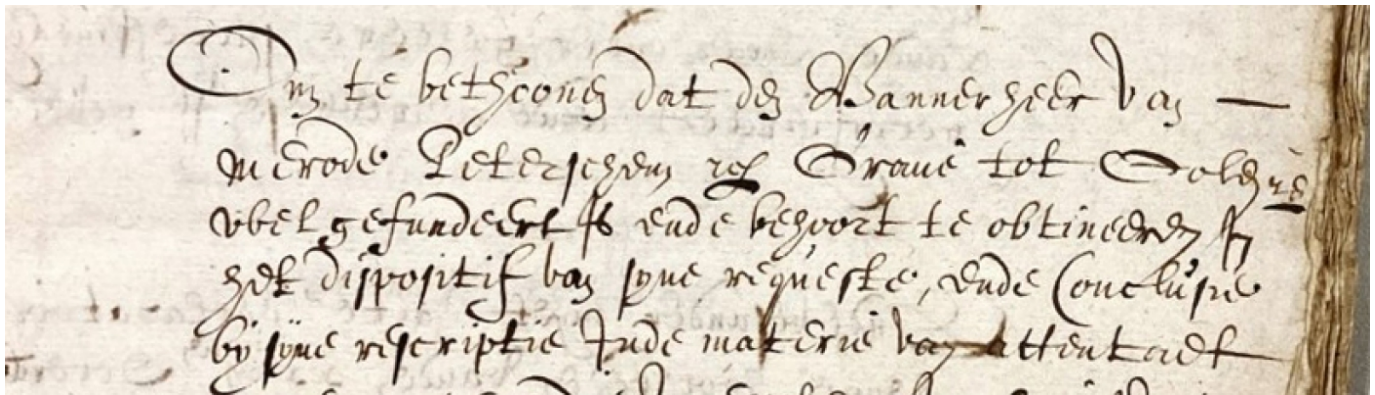 Om te bethoonen dat den Bannerheer van
merode Petershem etc Grave tot Oolen etc
wel gefundeert is ende behoort te obtineeren In
het dispositif van syne requeste, ende Conclusie
by syne rescriptie Inde materie van attentaet